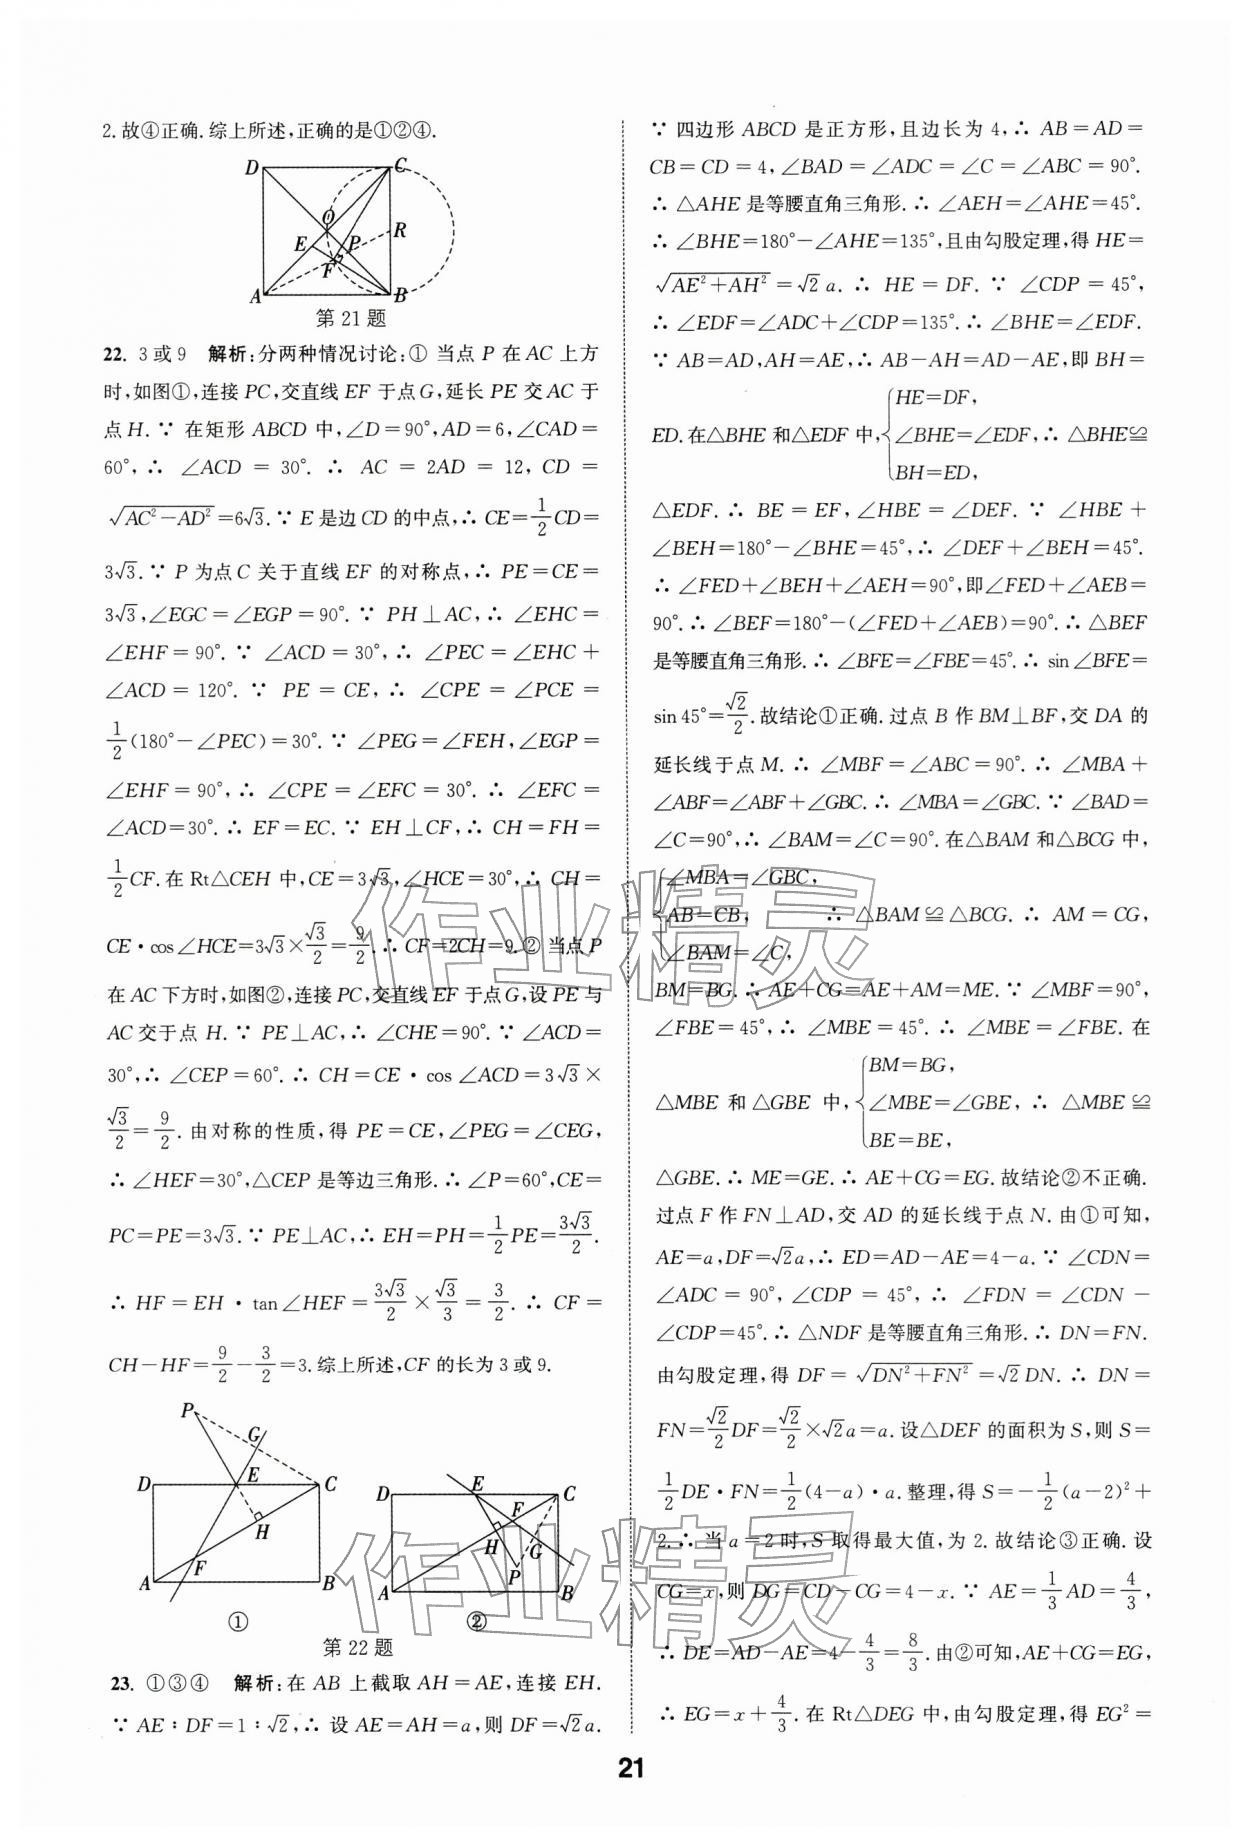 2.故④正确.综上所述,正确的是①②④.
D C
O
E P R
F
A B
第21题
22. 3或9 解析:分两种情况讨论:① 当点 P 在 AC 上方
时,如图①,连接 PC,交直线 EF 于点 G,延长 PE 交 AC 于
点 H.∵ 在矩形 ABCD 中,∠D=90°,AD=6,∠CAD=
60°,∴ ∠ACD = 30°. ∴ AC = 2AD = 12, CD =
√(AC²-AD²)=6√3.∵ E 是边 CD 的中点,∴ CE=1/2CD=
3√3.∵ P 为点 C 关于直线 EF 的对称点,∴ PE=CE=
3√3,∠EGC=∠EGP=90°.∵ PH⊥AC,∴ ∠EHC=
∠EHF=90°.∵ ∠ACD=30°,∴ ∠PEC=∠EHC+
∠ACD = 120°. ∵ PE = CE, ∴ ∠CPE = ∠PCE =
1/2(180°-∠PEC)=30°.∵ ∠PEG=∠FEH,∠EGP=
∠EHF = 90°,∴ ∠CPE = ∠EFC = 30°. ∴ ∠EFC =
∠ACD=30°.∴ EF=EC.∵ EH⊥CF,∴ CH=FH=
1/2CF.在 Rt△CEH 中,CE=3√3,∠HCE=30°,∴ CH=
CE·cos∠HCE=3√3×√3/2=9/2.∴ CF=2CH=9.② 当点 P
在 AC 下方时,如图②,连接 PC,交直线 EF 于点 G,设 PE 与
AC 交于点 H.∵ PE⊥AC,∴ ∠CHE=90°.∵ ∠ACD=
30°,∴ ∠CEP=60°.∴ CH=CE·cos∠ACD=3√3×
√3/2=9/2.由对称的性质,得 PE=CE,∠PEG=∠CEG,
∴ ∠HEF=30°,△CEP 是等边三角形.∴ ∠P=60°,CE=
PC=PE=3√3.∵ PE⊥AC,∴ EH=PH=1/2PE=3√3/2.
∴ HF=EH·tan∠HEF=3√3/2×√3/3=3/2.∴ CF=
CH-HF=9/2-3/2=3.综上所述,CF 的长为3或9.
P
G
D E C
H
F
A B
①
D E C
F
H G
P
A B
②
第22题
23. ①③④ 解析:在 AB 上截取 AH=AE,连接 EH.
∵ AE∶DF=1∶√2,∴ 设 AE=AH=a,则 DF=√2a.
∵ 四边形 ABCD 是正方形,且边长为4,∴ AB=AD=
CB=CD=4,∠BAD=∠ADC=∠C=∠ABC=90°.
∴ △AHE 是等腰直角三角形.∴ ∠AEH=∠AHE=45°.
∴ ∠BHE=180°-∠AHE=135°,且由勾股定理,得 HE=
√(AE²+AH²)=√2a.∴ HE=DF.∵ ∠CDP=45°,
∴ ∠EDF=∠ADC+∠CDP=135°.∴ ∠BHE=∠EDF.
∵ AB=AD,AH=AE,∴ AB-AH=AD-AE,即 BH=
HE=DF,
ED.在△BHE 和△EDF 中,{∠BHE=∠EDF,∴ △BHE≌
BH=ED,
△EDF.∴ BE=EF,∠HBE=∠DEF.∵ ∠HBE+
∠BEH=180°-∠BHE=45°,∴ ∠DEF+∠BEH=45°.
∴ ∠FED+∠BEH+∠AEH=90°,即∠FED+∠AEB=
90°.∴ ∠BEF=180°-(∠FED+∠AEB)=90°.∴ △BEF
是等腰直角三角形.∴ ∠BFE=∠FBE=45°.∴ sin∠BFE=
sin 45°=√2/2.故结论①正确.过点 B 作 BM⊥BF,交 DA 的
延长线于点 M.∴ ∠MBF=∠ABC=90°.∴ ∠MBA+
∠ABF=∠ABF+∠GBC.∴ ∠MBA=∠GBC.∵ ∠BAD=
∠C=90°,∴ ∠BAM=∠C=90°.在△BAM 和△BCG 中,
∠MBA=∠GBC,
{AB=CB, ∴ △BAM≌△BCG.∴ AM=CG,
∠BAM=∠C,
BM=BG.∴ AE+CG=AE+AM=ME.∵ ∠MBF=90°,
∠FBE=45°,∴ ∠MBE=45°.∴ ∠MBE=∠FBE.在
BM=BG,
△MBE 和△GBE 中,{∠MBE=∠GBE,∴ △MBE≌
BE=BE,
△GBE.∴ ME=GE.∴ AE+CG=EG.故结论②不正确.
过点 F 作 FN⊥AD,交 AD 的延长线于点 N.由①可知,
AE=a,DF=√2a,∴ ED=AD-AE=4-a.∵ ∠CDN=
∠ADC = 90°,∠CDP = 45°,∴ ∠FDN = ∠CDN -
∠CDP=45°.∴ △NDF 是等腰直角三角形.∴ DN=FN.
由勾股定理,得 DF=√(DN²+FN²)=√2DN.∴ DN=
FN=√2/2DF=√2/2×√2a=a.设△DEF 的面积为 S,则 S=
1/2DE·FN=1/2(4-a)·a.整理,得 S=-1/2(a-2)²+
2.∴ 当 a=2时,S 取得最大值,为2.故结论③正确.设
CG=x,则 DG=CD-CG=4-x.∵ AE=1/3AD=4/3,
∴ DE=AD-AE=4-4/3=8/3.由②可知,AE+CG=EG,
∴ EG=x+4/3.在 Rt△DEG 中,由勾股定理,得 EG²=
21
作业精灵
作业精灵